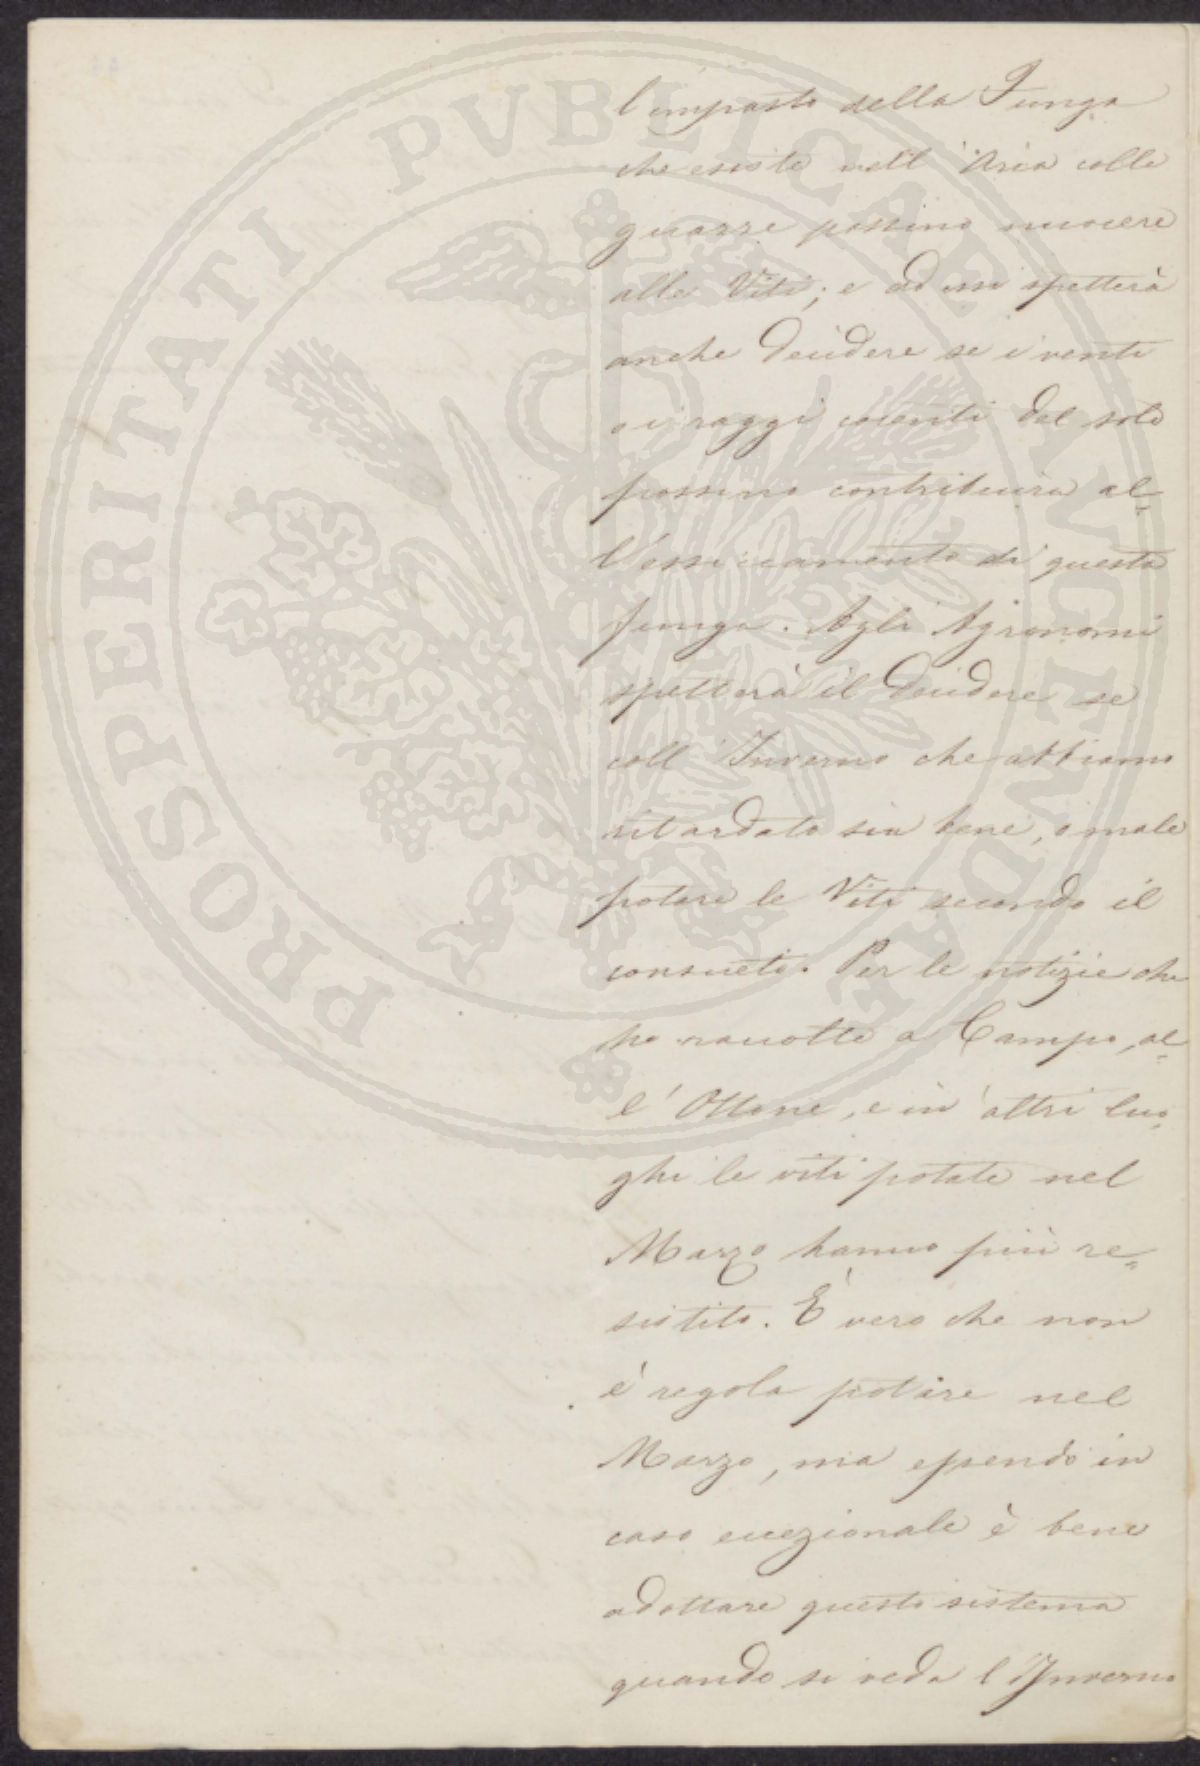 l'impasto della Funga
che esiste nell'Aria colle
guazze possino nuocere
alle Viti; e ad essi spetterà
anche decidere se i venti
o i raggi cocenti del sole
possino contribuire al=
l'essiccamento di questa
funga. Agli Agronomi
spetterà il decidere se
coll'Inverno che abbiamo
ritardato sia bene, o male
potare le Viti secondo il
consueto. Per le notizie che
ho raccolte a Campo, al=
l'Ottone, e in altri luo=
ghi le viti potate nel
Marzo hanno più re=
sistito. È vero che non
è regola potare nel
Marzo, ma essendo in
caso eccezionale è bene
adottare questo sistema
quando si veda l'Inverno
PROSPERITATI PVBLICAE AVGENDAE